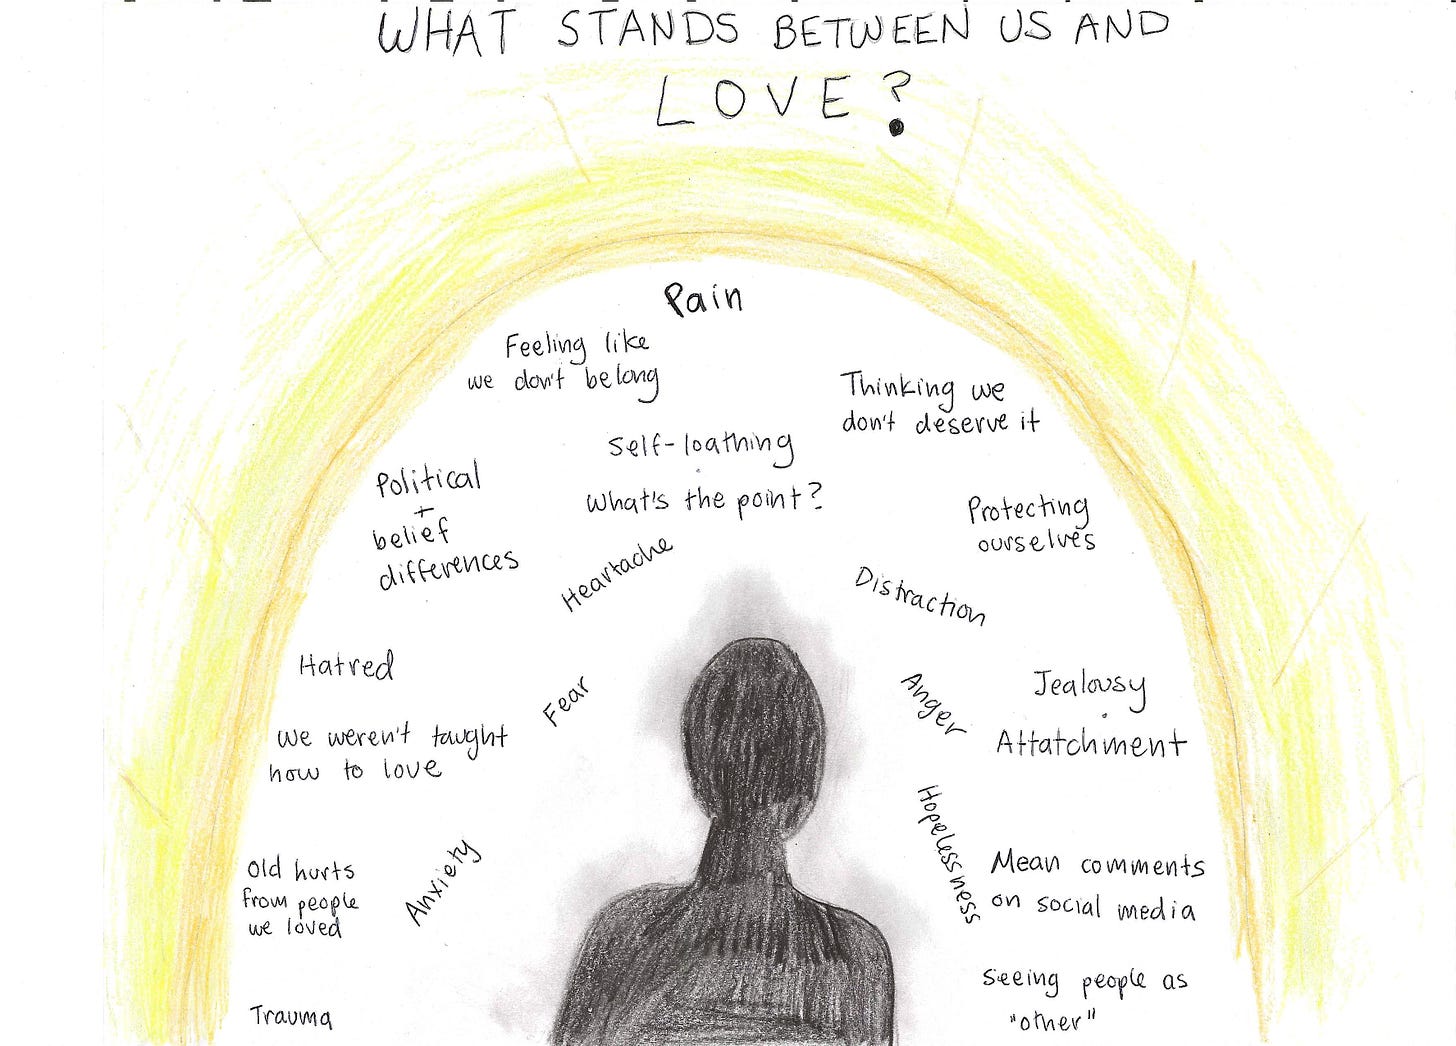 WHAT STANDS BETWEEN US AND
LOVE?
Pain
Feeling like
we don't belong
Thinking we
don't deserve it
Self-loathing
What's the point?
Political
+
belief
differences
Protecting
ourselves
Heartache
Distraction
Hatred
Fear
Anger
Jealousy
Attatchment
we weren't taught
how to love
Hopelessness
Anxiety
Old hurts
from people
we loved
Mean comments
on social media
Seeing people as
"other"
Trauma